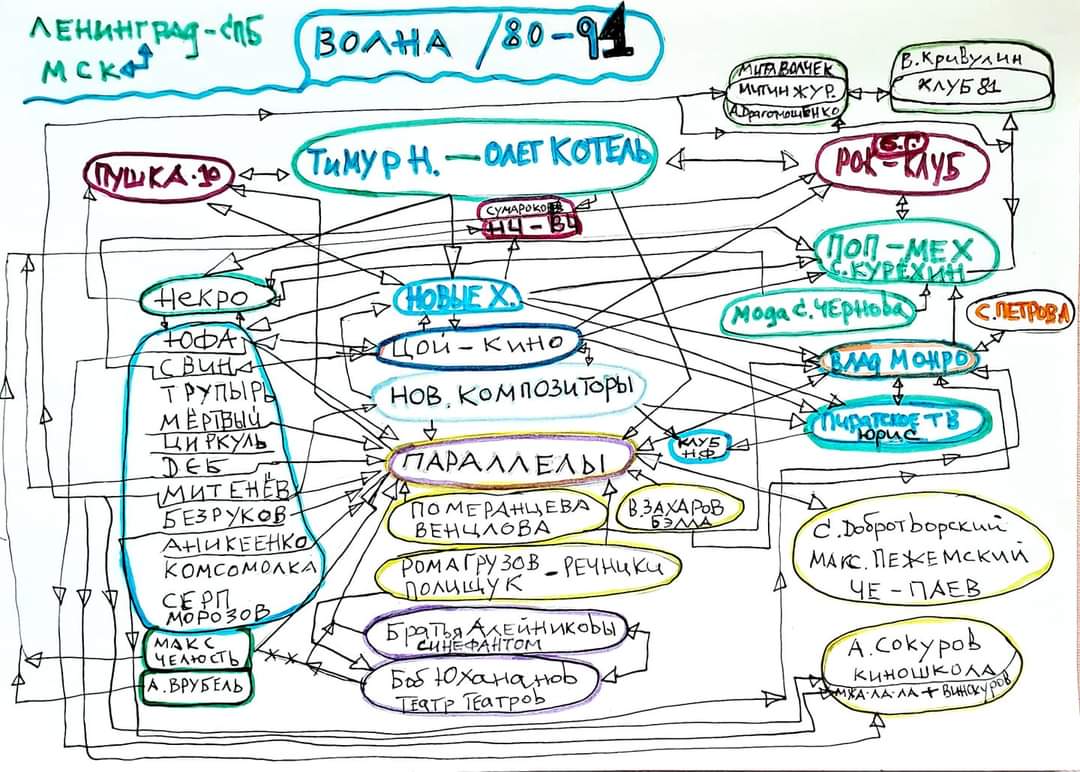 ЛЕНИНГРАД-СПБ
МСК
ВОЛНА /80-91
МИТЯ ВОЛЧЕК
МИТИН ЖУР.
А.ДРАГОМОЩЕНКО
В. КРИВУЛИН
КЛУБ 81
ПУШКА.10
ТИМУР Н. — ОЛЕГ КОТЕЛЬ
Б.Г.
РОК-КЛУБ
СУМАРОКОВ
НЧ-ВЧ
ПОП-МЕХ
С.КУРЁХИН
НЕКРО
НОВЫЕ Х.
МОДА С. ЧЕРНОВА
С.ПЕТРОВА
ЮФА
СВИН
ТРУПЫРЬ
МЁРТВЫЙ
ЦИРКУЛЬ
ДЕБ
МИТЕНЁВ
БЕЗРУКОВ
АНИКЕЕНКО
КОМСОМОЛКА
СЕРП
МОРОЗОВ
ЦОЙ-КИНО
ВЛАД МОНРО
НОВ. КОМПОЗИТОРЫ
ПИРАТСКОЕ ТВ
ЮРИС
КЛУБ
НФ
ПАРАЛЛЕЛЫ
ПОМЕРАНЦЕВА
ВЕНЦЛОВА
В.ЗАХАРОВ
БЭЛЛА
С. ДОБРОТВОРСКИЙ
МАКС. ПЕЖЕМСКИЙ
ЧЕ-ПАЕВ
РОМА ГРУЗОВ - РЕЧНИКИ
ПОЛИЩУК
БРАТЬЯ АЛЕЙНИКОВЫ
СИНЕФАНТОМ
МАКС
ЧЕЛЮСТЬ
А.ВРУБЕЛЬ
БОБ ЮХАНАНОВ
ТЕАТР ТЕАТРОВ
А. СОКУРОВ
КИНОШКОЛА
МЖА-ЛА-ЛА + ВИНОКУРОВ